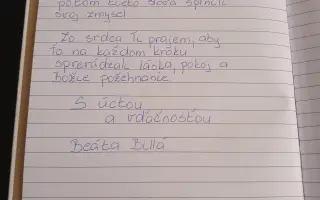 potom tieto slová splnili
svoj zmysel
Zo srdca Ti prajem, aby
Ťa na každom kroku
sprevádzali láska, pokoj a
Božie požehnanie.
S úctou
a vďačnosťou
Beáta Billá